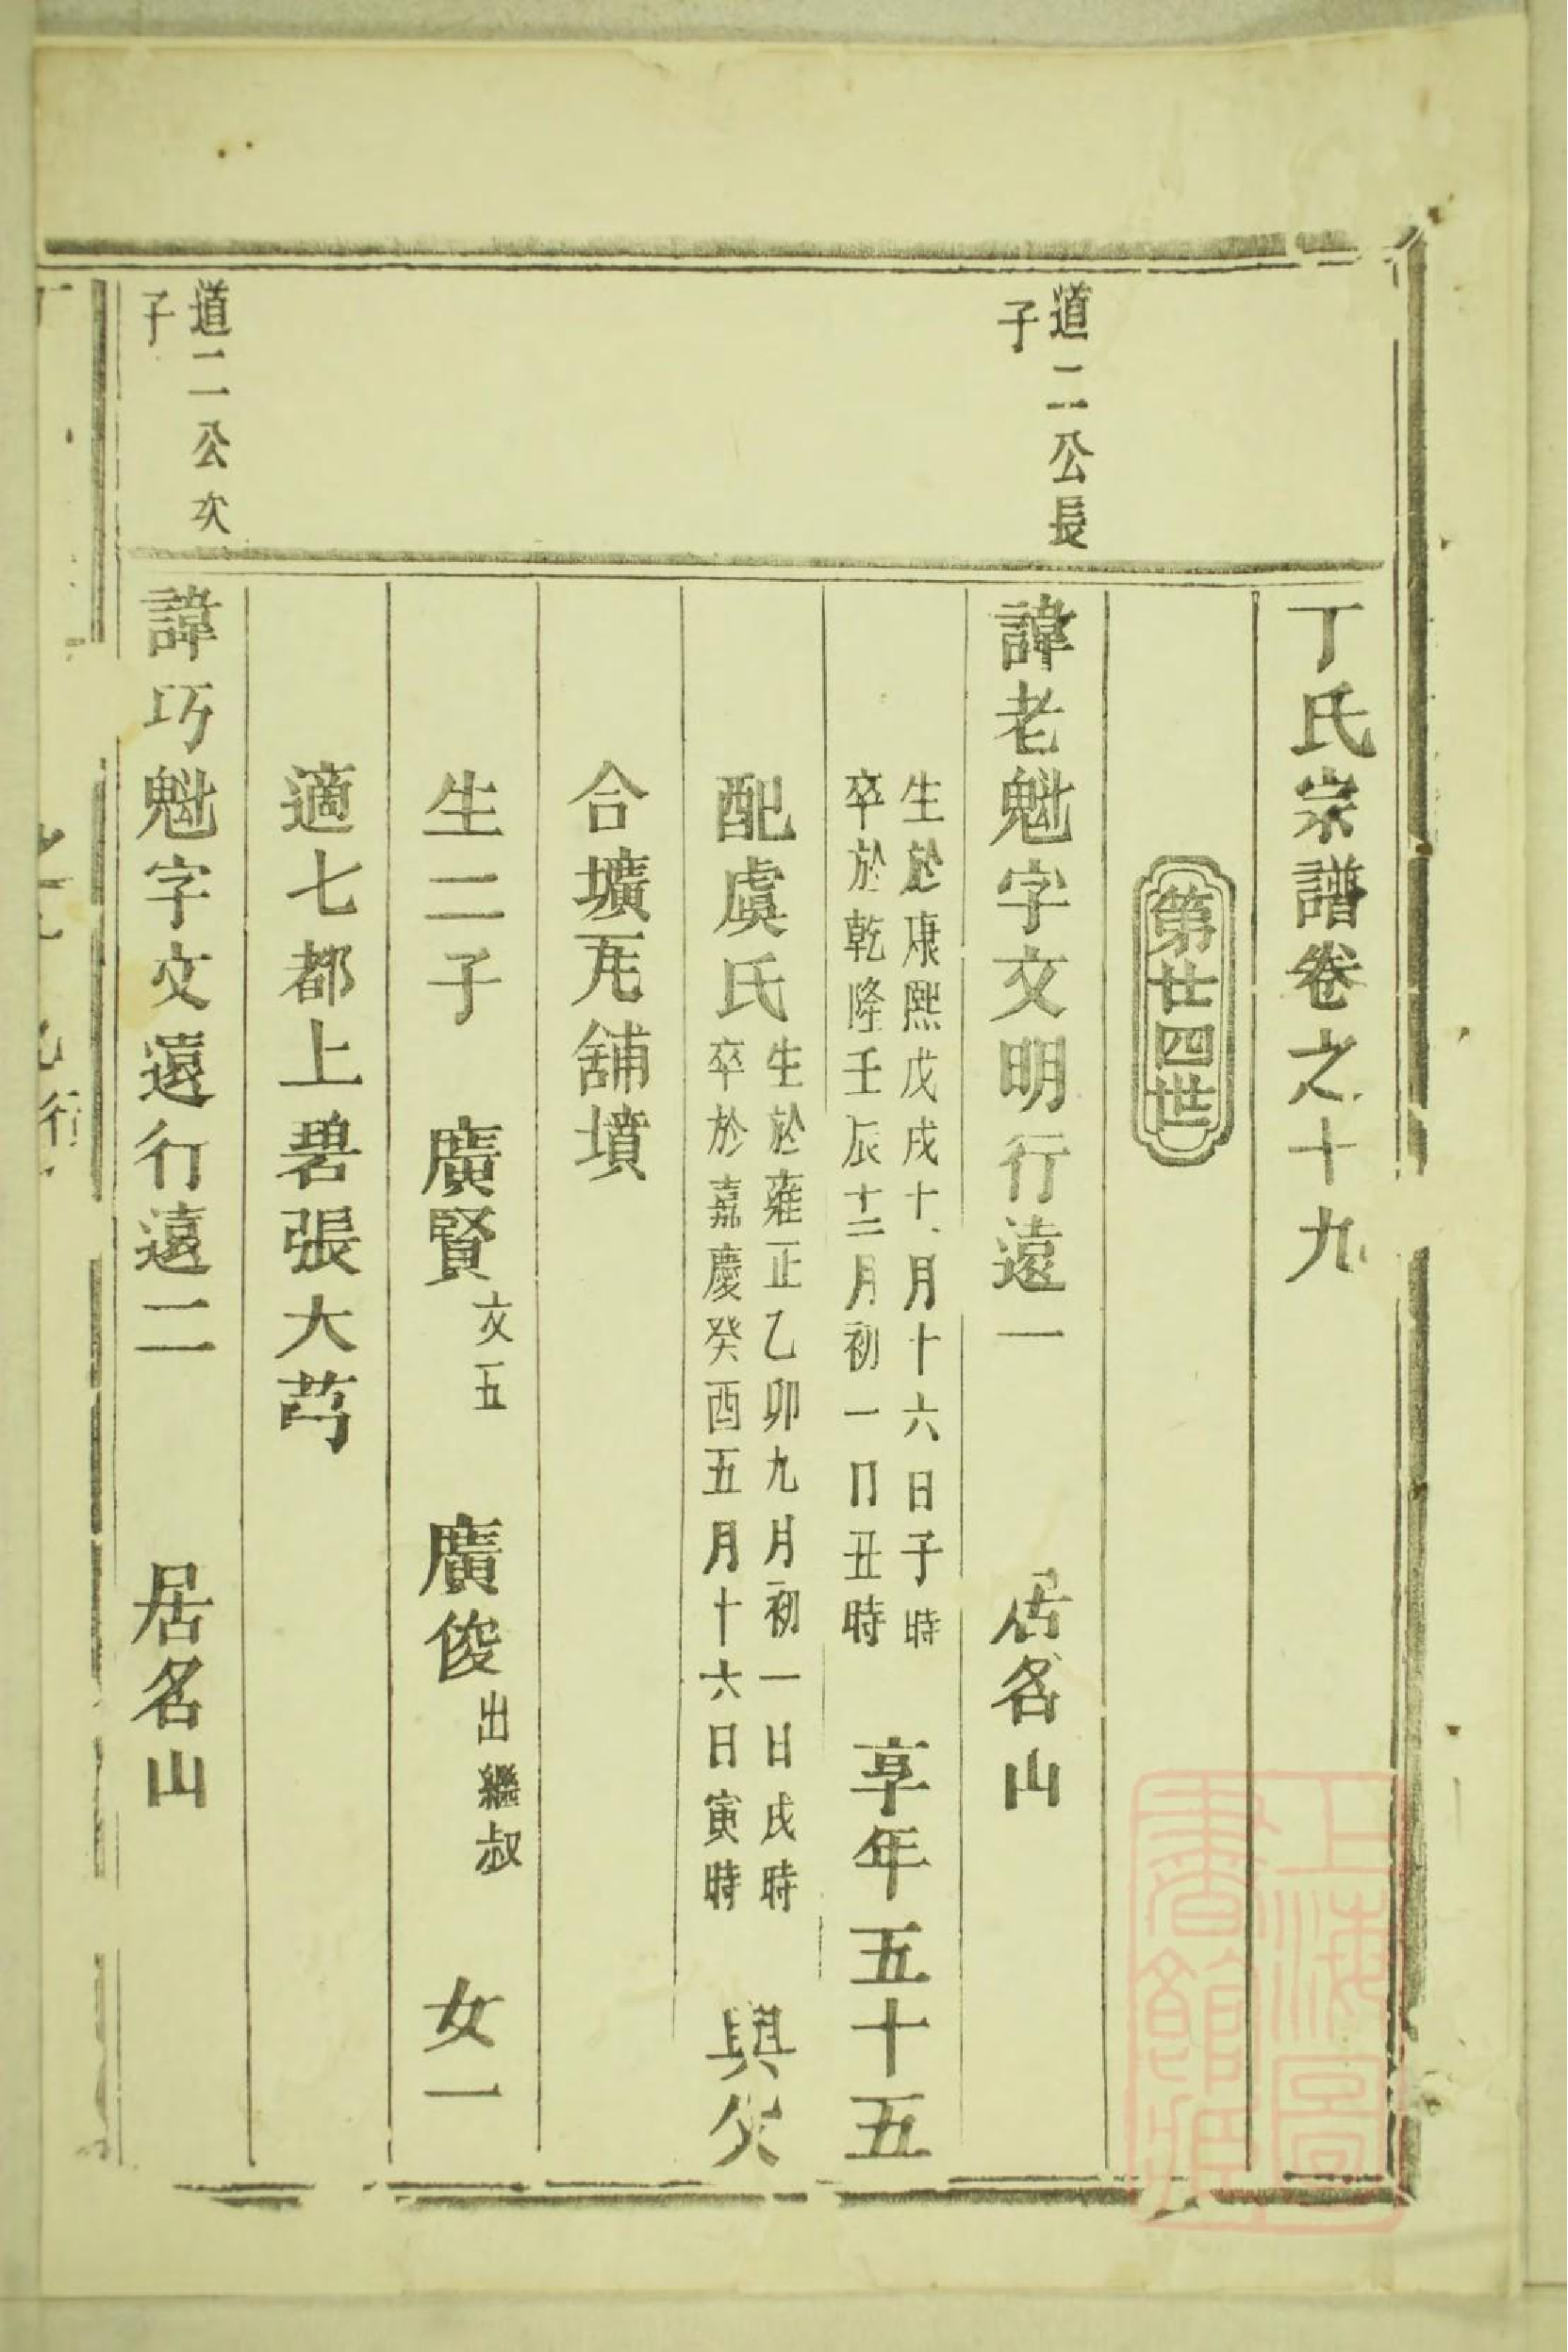 丁氏宗譜卷之十九
第廿四世
道二公長
子
諱老魁字文明行遠一 居名山
生於康熙戊戌十月十六日子時
卒於乾隆壬辰十二月初一日丑時
享年五十五
配虞氏
生於雍正乙卯九月初一日戌時
卒於嘉慶癸酉五月十六日寅時
與父
合壙瓦舖墳
生二子 廣賢文五 廣俊出繼叔 女一
適七都上碧張大芎
道二公次
子
諱巧魁字文遠行遠二 居名山
上海圖
書館藏